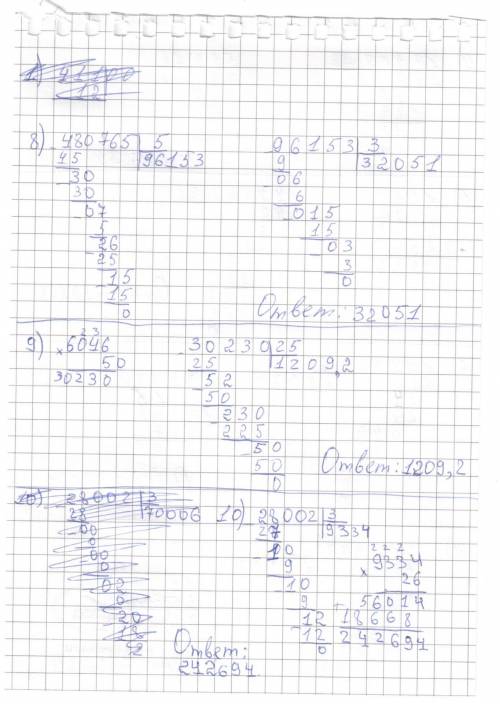 8) 480765 | 5
45 96153
30
30
07
5
26
25
15
15
0
96153 | 3
9 32051
06
6
015
15
03
3
0
Ответ: 32051
9) 23
× 6046
50
30230
30230 | 25
25 1209,2
52
50
230
225
50
50
0
Ответ: 1209,2
10) 28002 | 3
28 70006
00
0
00
0
02
0
20
18
2
10) 28002 | 3
27 9334
10
9
10
9
12
12
0
222
9334
× 26
+ 56014
18668
242694
Ответ:
242694